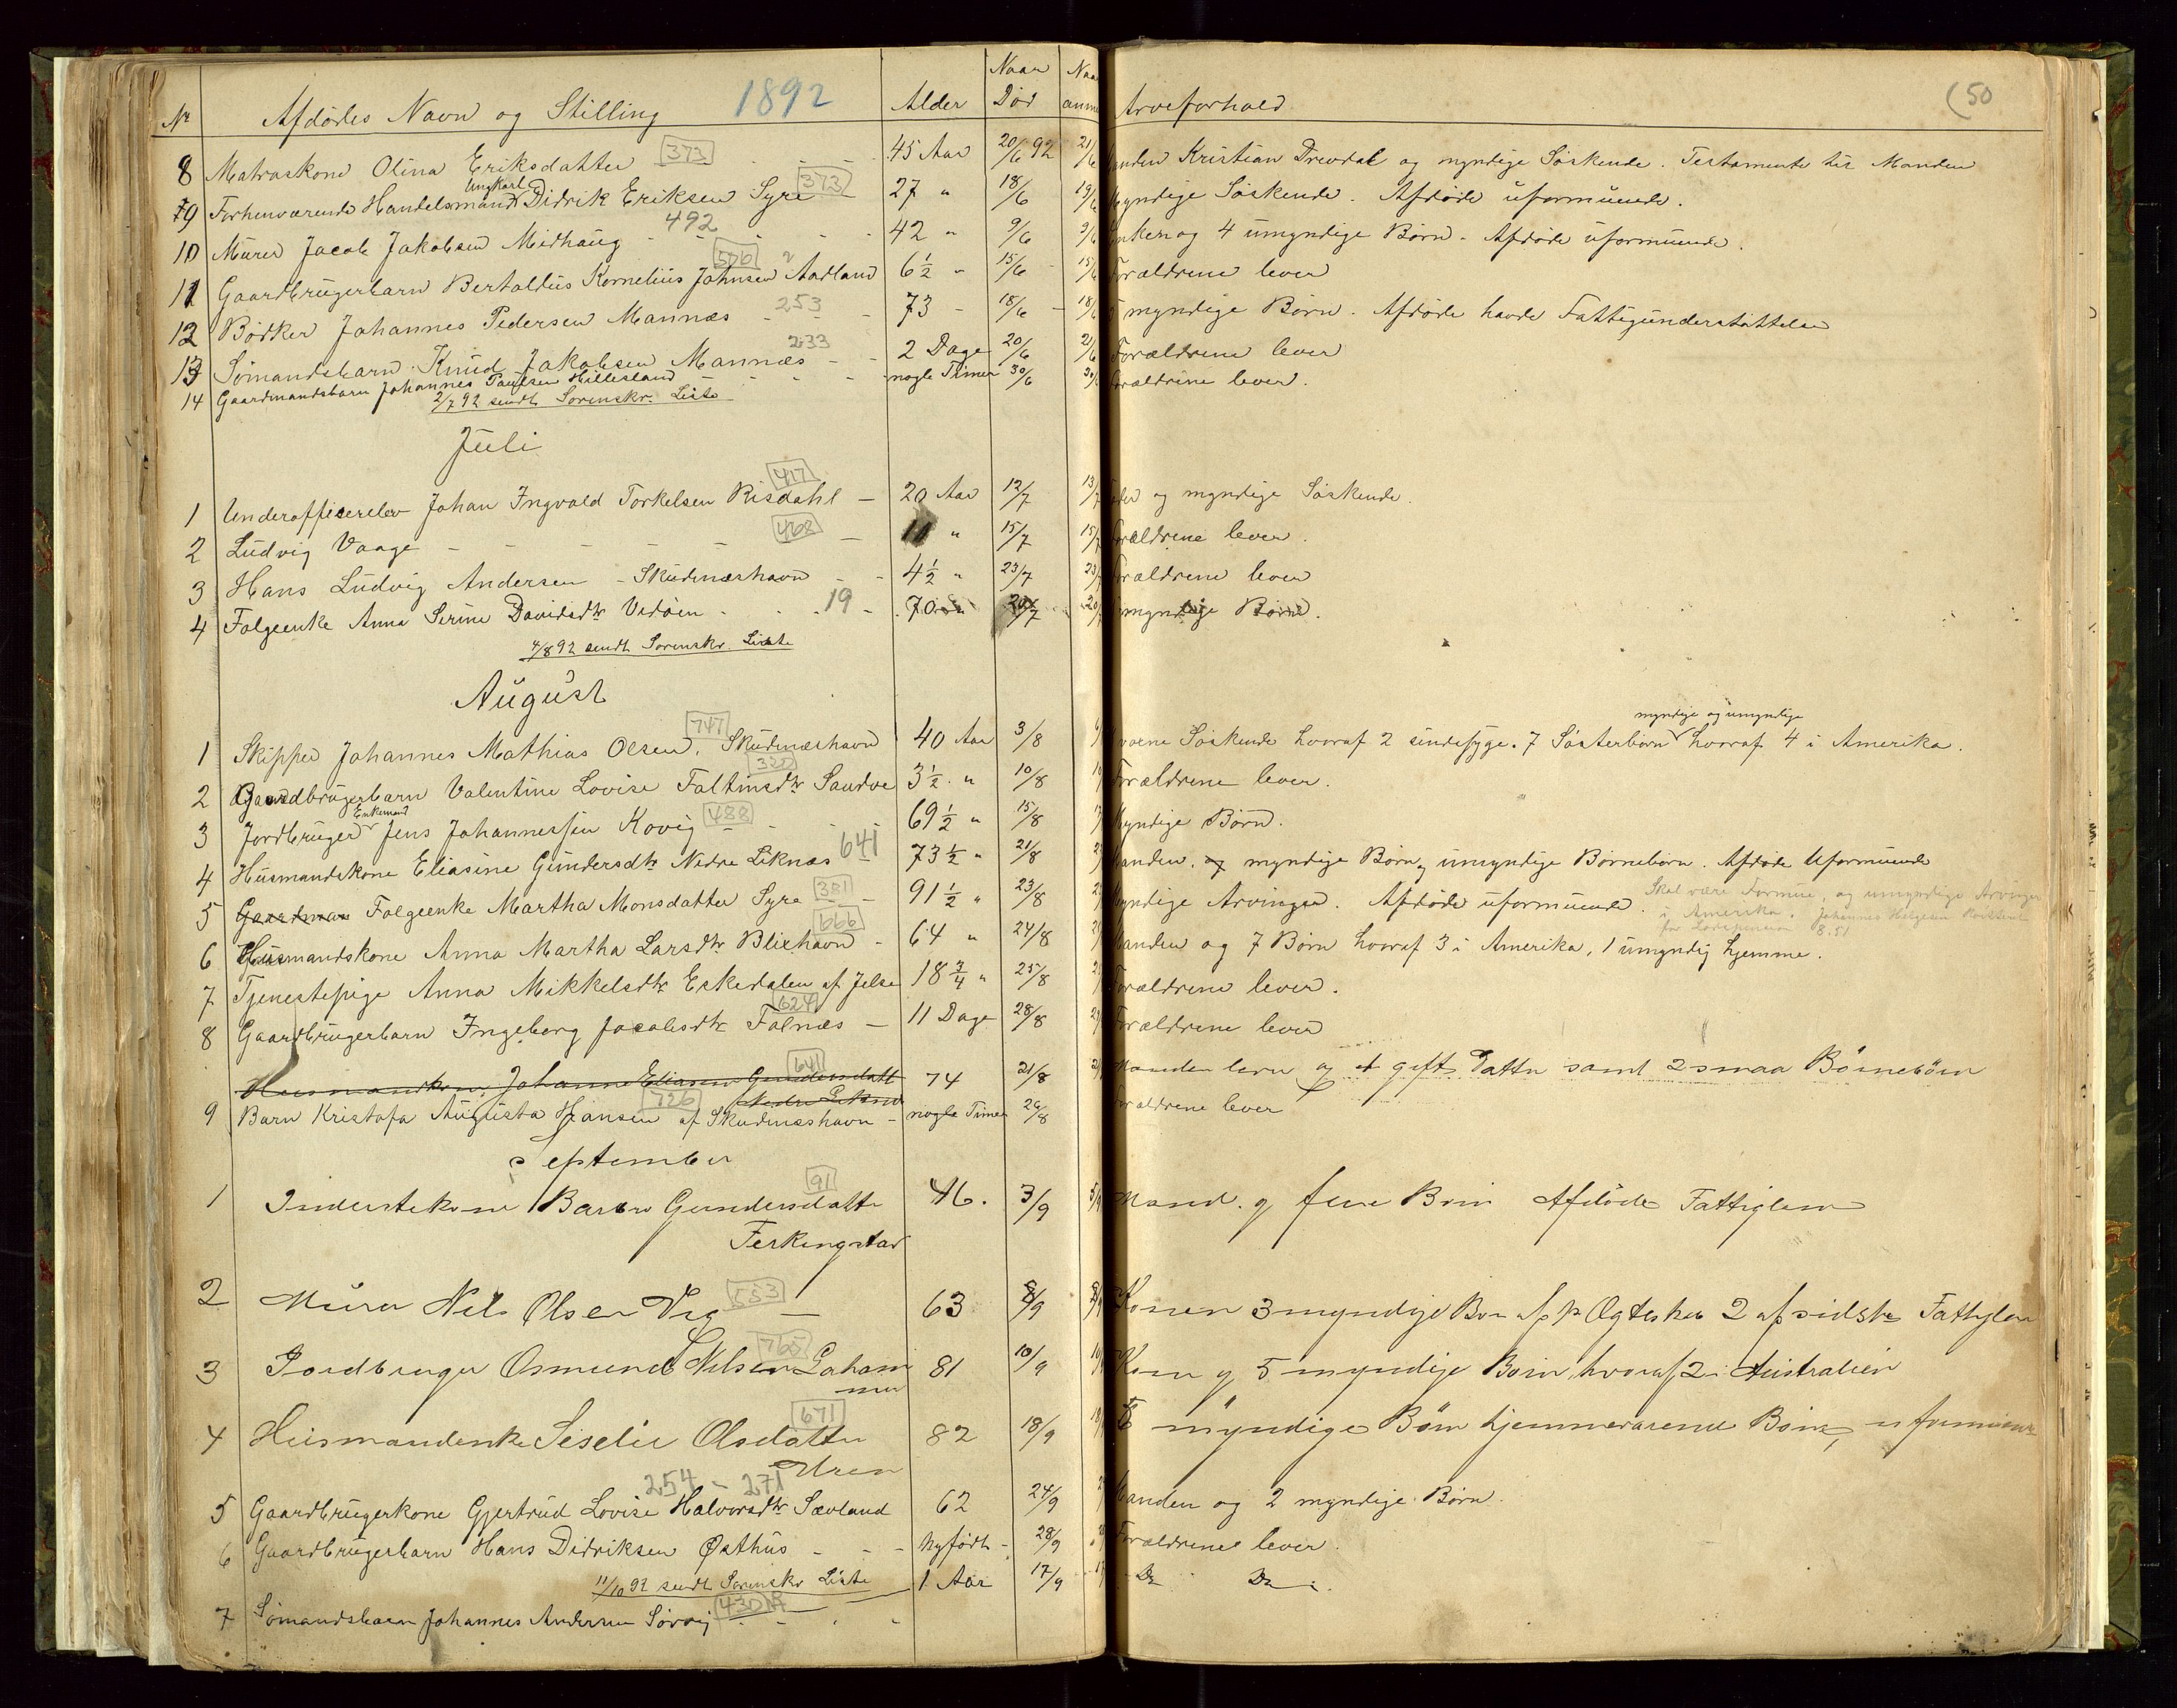 Nr Afdødes Navn og Stilling 1892 Alder Naar Død Naa anme Arveforhold (50
8 Matroskone Olina Eriksdatter 373 45 Aar 20/6 92 21/6 anden Kristian Drevdal og myndige Søskende. Testamente til Manden
9 Forhenværende Handelsmand Ungkarl Didrik Eriksen Syre 373 27 " 18/6 19/6 yndige Søskende. Afdøde uformuende.
10 Murer Jacob Jakobsen Midhaug 492 42 " 9/6 9/6 nken og 4 umyndige Børn. Afdøde uformuende.
11 Gaardbrugerbarn Bertaldus Kornelius Johnsen Aadland 576 6½ " 15/6 15/6 Forældrene lever
12 Bødker Johannes Pedersen Mannæs 253 73 - 18/6 - 18/6 5 myndige Børn. Afdøde havde Fattigunderstøttelse
13 Sømandsbarn Knud Jakobsen Mannæs 233 2 Dage 20/6 21/6 Forældrene lever
14 Gaardmandsbarn Johannes Paulsen Hillesland nogle Timer 30/6 30/6 Forældrene lever.
2/7 92 sendt Sorenskr. Liste
Juli
1 Underofficerelev Johan Ingvald Torkelsen Risdahl 417 20 Aar 12/7 13/7 ader og myndige Søskende.
2 Ludvig Vaage 462 11 " 15/7 15/7 Forældrene lever.
3 Hans Ludvig Andersen - Skudesneshavn 4½ " 23/7 23/7 Forældrene lever
4 Folgeenke Anna Serine Davidsdtr Vedøen 19 70 20/7 20/7 myndige Børn.
4/8 92 sendt Sorenskr. Liste
August
1 Skipper Johannes Mathias Olsen, Skudesneshavn 747 40 Aar 3/8 voxne Søskende hvoraf 2 sindssyge. 7 Søsterbørn myndige og umyndige hvoraf 4 i Amerika.
2 Gaardbrugerbarn Valentine Lovise Faltinsdtr Sandve 3½ " 10/8 Forældrene lever.
3 Jordbruger Enkemand Jens Johannessen Kovig 488 69½ " 15/8 yndige Børn.
4 Husmandskone Eliasine Gundersdtr Nedre Liknæs 641 73½ " 21/8 anden, og myndige Børn, umyndige Børnebørn. Afdøde Uformuende
5 Gaardman Folgeenke Martha Monsdatter Syre 381 91½ " 23/8 yndige Arvinger. Afdøde uformuende. Skal være Formue, og umyndige Arvinger
i Amerika. Johannes Helgesen
6 Husmandskone Anna Martha Larsdtr Blixhavn 666 64 " 24/8 anden og 7 Børn hvoraf 3 i Amerika, 1 umyndig hjemme.
7 Tjenestepige Anna Mikkelsdtr Eskedalen af Jelse 18¾ " 25/8 Forældrene lever.
8 Gaardbrugerbarn Ingeborg Jacobsdtr Falnæs 624 11 Dage 28/8 Forældrene lever
Husmandkone Johanne Eliasen Gundersdatt Nedre Liknæs 641 74 21/8 Manden lever og et gift Datter samt 2 smaa Børnebørn
9 Barn Kristofa Augusta Hansen af Skudesneshavn 726 nogle Timer 26/8 Forældrene lever
September
1 Inderstekone Barbro Gundersdatter 91 46. 3/9 5/9 Mand og fire Børn Afdøde Fattiglem
Ferkingstad
2 Murer Nils Olsen Vig 553 63 8/9 Konen 3 myndige Børn af Ægteskab 2 af sidste Fattiglem
3 Jordbruger Osmund Nilsen Lahammer 765 81 10/9 Kone og 5 myndige Børn hvoraf 2 i Australien
4 Husmandenke Seselie Olsdatter 671 82 18/9 myndige Børn hjemmeværende Børn, uformuende
Uren
5 Gaardbrugerkone Gjertrud Lovise Halvorsdtr Sævland 254 - 271 62 24/9 Manden og 2 myndige Børn.
6 Gaardbrugerbarn Hans Didriksen Østhus nyfødt - 28/9 Forældrene lever.
11/10 92 sendt Sorenskr Liste
7 Sømandsbarn Johannes Andersen Sørvig 430 1 Aar 17/9 Do Do